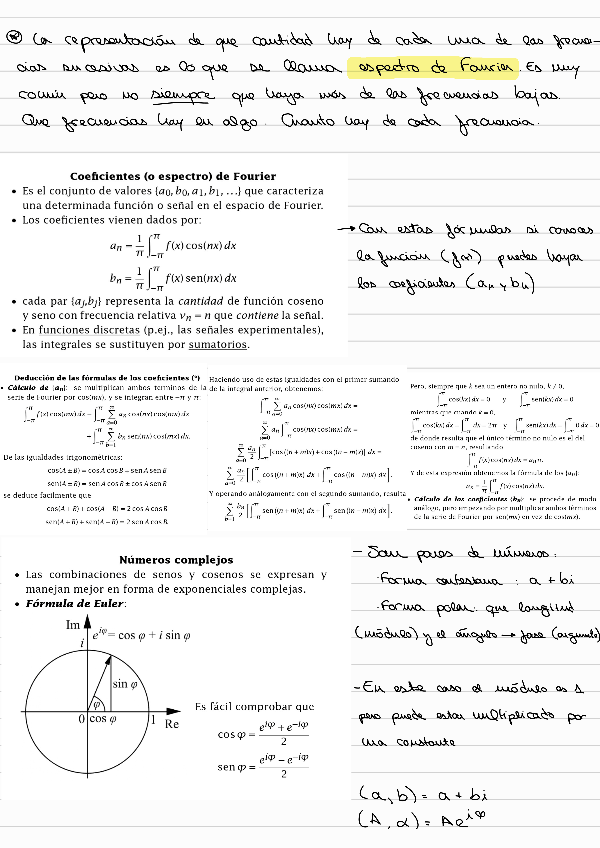 ⊛ La representación de que cantidad hay de cada una de las frecuen-
cias sucesivas es lo que se llama espectro de Fourier. Es muy
común pero no siempre que haya más de las frecuencias bajas.
Que frecuencias hay en algo. Cuanto hay de cada frecuencia.
Coeficientes (o espectro) de Fourier
• Es el conjunto de valores {a₀, b₀, a₁, b₁, ...} que caracteriza
una determinada función o señal en el espacio de Fourier.
• Los coeficientes vienen dados por:
aₙ = 1/π ∫_{-π}^{π} f(x) cos(nx) dx
bₙ = 1/π ∫_{-π}^{π} f(x) sen(nx) dx
• cada par {aⱼ,bⱼ} representa la cantidad de función coseno
y seno con frecuencia relativa νₙ = n que contiene la señal.
• En funciones discretas (p.ej., las señales experimentales),
las integrales se sustituyen por sumatorios.
→ Con estas fórmulas si conoces
la función (f(x)) puedes hayar
los coeficientes (aₙ y bₙ)
Deducción de las fórmulas de los coeficientes (*)
• Cálculo de {aₙ}: se multiplican ambos términos de la
serie de Fourier por cos(mx), y se integran entre -π y π:
De las igualdades trigonométricas:
cos(A ± B) = cos A cos B ∓ sen A sen B
sen(A ± B) = sen A cos B ± cos A sen B
se deduce fácilmente que
cos(A + B) + cos(A − B) = 2 cos A cos B
sen(A + B) + sen(A − B) = 2 sen A cos B.
Haciendo uso de estas igualdades con el primer sumando
de la integral anterior, obtenemos:
Y operando análogamente con el segundo sumando, resulta
Pero, siempre que k sea un entero no nulo, k ≠ 0,
mientras que cuando k = 0,
de donde resulta que el único término no nulo es el del
coseno con m = n, resultando
Y de esta expresión obtenemos la fórmula de los {aₙ}:
• Cálculo de los coeficientes {bₙ}: se procede de modo
análogo, pero empezando por multiplicar ambos términos
de la serie de Fourier por sen(mx) en vez de cos(mx).
Números complejos
• Las combinaciones de senos y cosenos se expresan y
manejan mejor en forma de exponenciales complejas.
• Fórmula de Euler:
Im
i
e^{iφ} = cos φ + i sin φ
sin φ
φ
0 cos φ 1 Re
Es fácil comprobar que
cos φ = (e^{iφ} + e^{-iφ})/2
sen φ = (e^{iφ} − e^{-iφ})/2
- Son pares de números:
· Forma cartesiana : a + bi
· Forma polar: que longitud
(módulo) y el ángulo → fase (argumento)
- En este caso el módulo es 1
pero puede estar multiplicado por
una constante
(a, b) = a + bi
(A, α) = Ae^{iφ}